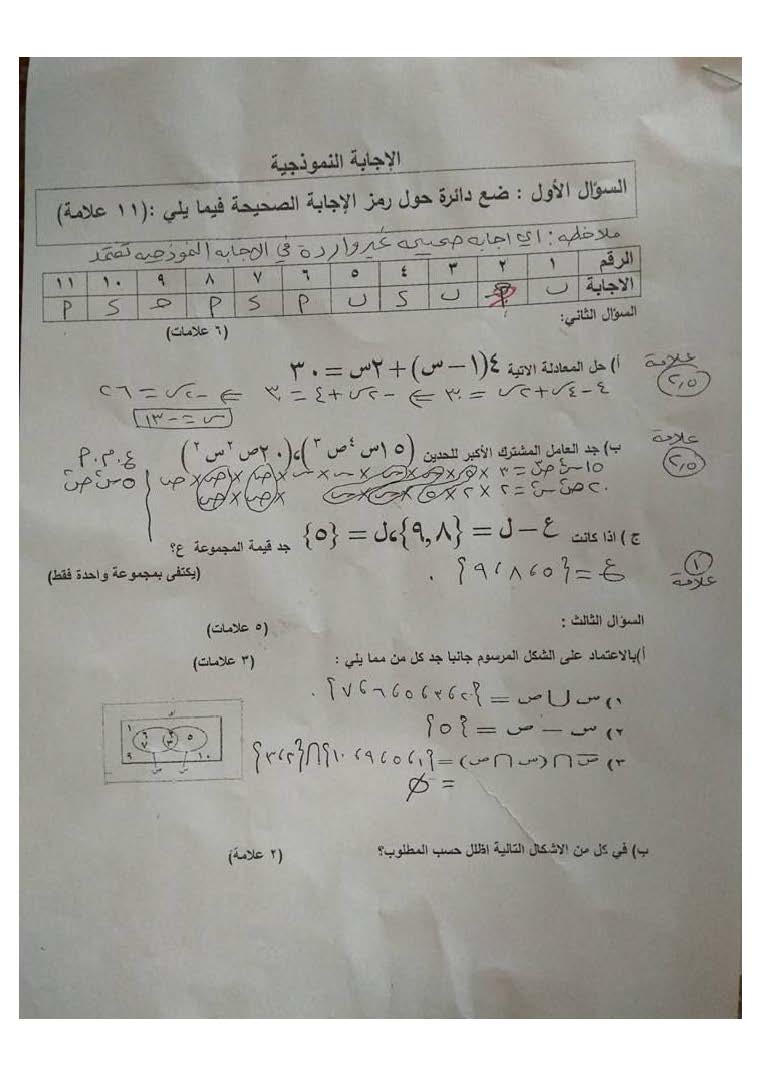 الإجابة النموذجية
السؤال الأول : ضع دائرة حول رمز الإجابة الصحيحة فيما يلي :(١١ علامة)
ملاحظه : أي اجابه صحيحه غير واردة في الاجابه النموذجيه تعتمد
الرقم ١ ٢ ٣ ٤ ٥ ٦ ٧ ٨ ٩ ١٠ ١١
الاجابة ب ب د ب أ د أ ج د أ
السؤال الثاني:
(٦ علامات)
أ) حل المعادلة الاتية ٤(١−س)+٢س=٣٠ علامة ٢,٥
٤−٤س+٢س = ٣٠ ⇐ −٢س+٤ = ٣٠ ⇐ −٢س = ٢٦
س = −١٣
ب) جد العامل المشترك الأكبر للحدين (١٥س٤ص٣)،(٢٠ص٢س٢) علامة ٢,٥
ع.م.أ
٥س٢ص٢
ج) اذا كانت ع−ل={٩,٨}،ل={٥} جد قيمة المجموعة ع؟
ع = {٥،٨،٩} . ١ علامة
(يكتفى بمجموعة واحدة فقط)
السؤال الثالث :
(٥ علامات)
أ)بالاعتماد على الشكل المرسوم جانبا جد كل من مما يلي : (٣ علامات)
١) س ∪ ص = {٢،٣،٥،٦،٧} .
٢) س − ص = {٥}
٣) ص ∩ (س ∩ ص) = {١،٥،٩،١٠} ∩ {٢،٣}
= ∅
١ ٦ ٧ ٢ ٣ ٥ ٩ ١٠
ب) في كل من الاشكال التالية اظلل حسب المطلوب؟ (٢ علامة)